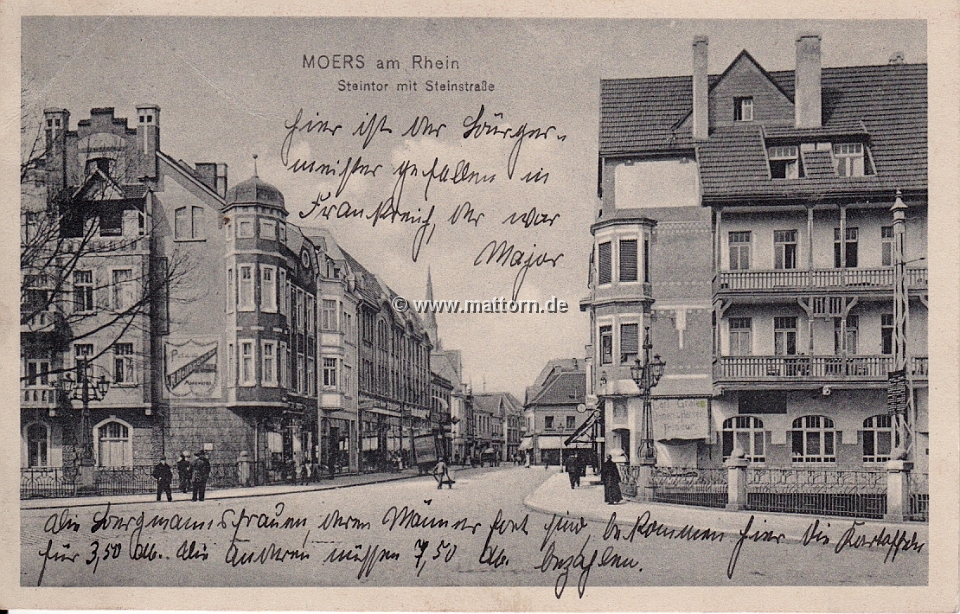 MOERS am Rhein
Steintor mit Steinstraße
Hier ist der Bürger-
meister gefallen in
Frankreich, der war
Major
© www.mattorn.de
Die Bergmannsfrauen, deren Männer fort sind, bekommen hier die Kartoffeln
für 3,50 Mk. die Anderen müssen 7,50 Mk. bezahlen.